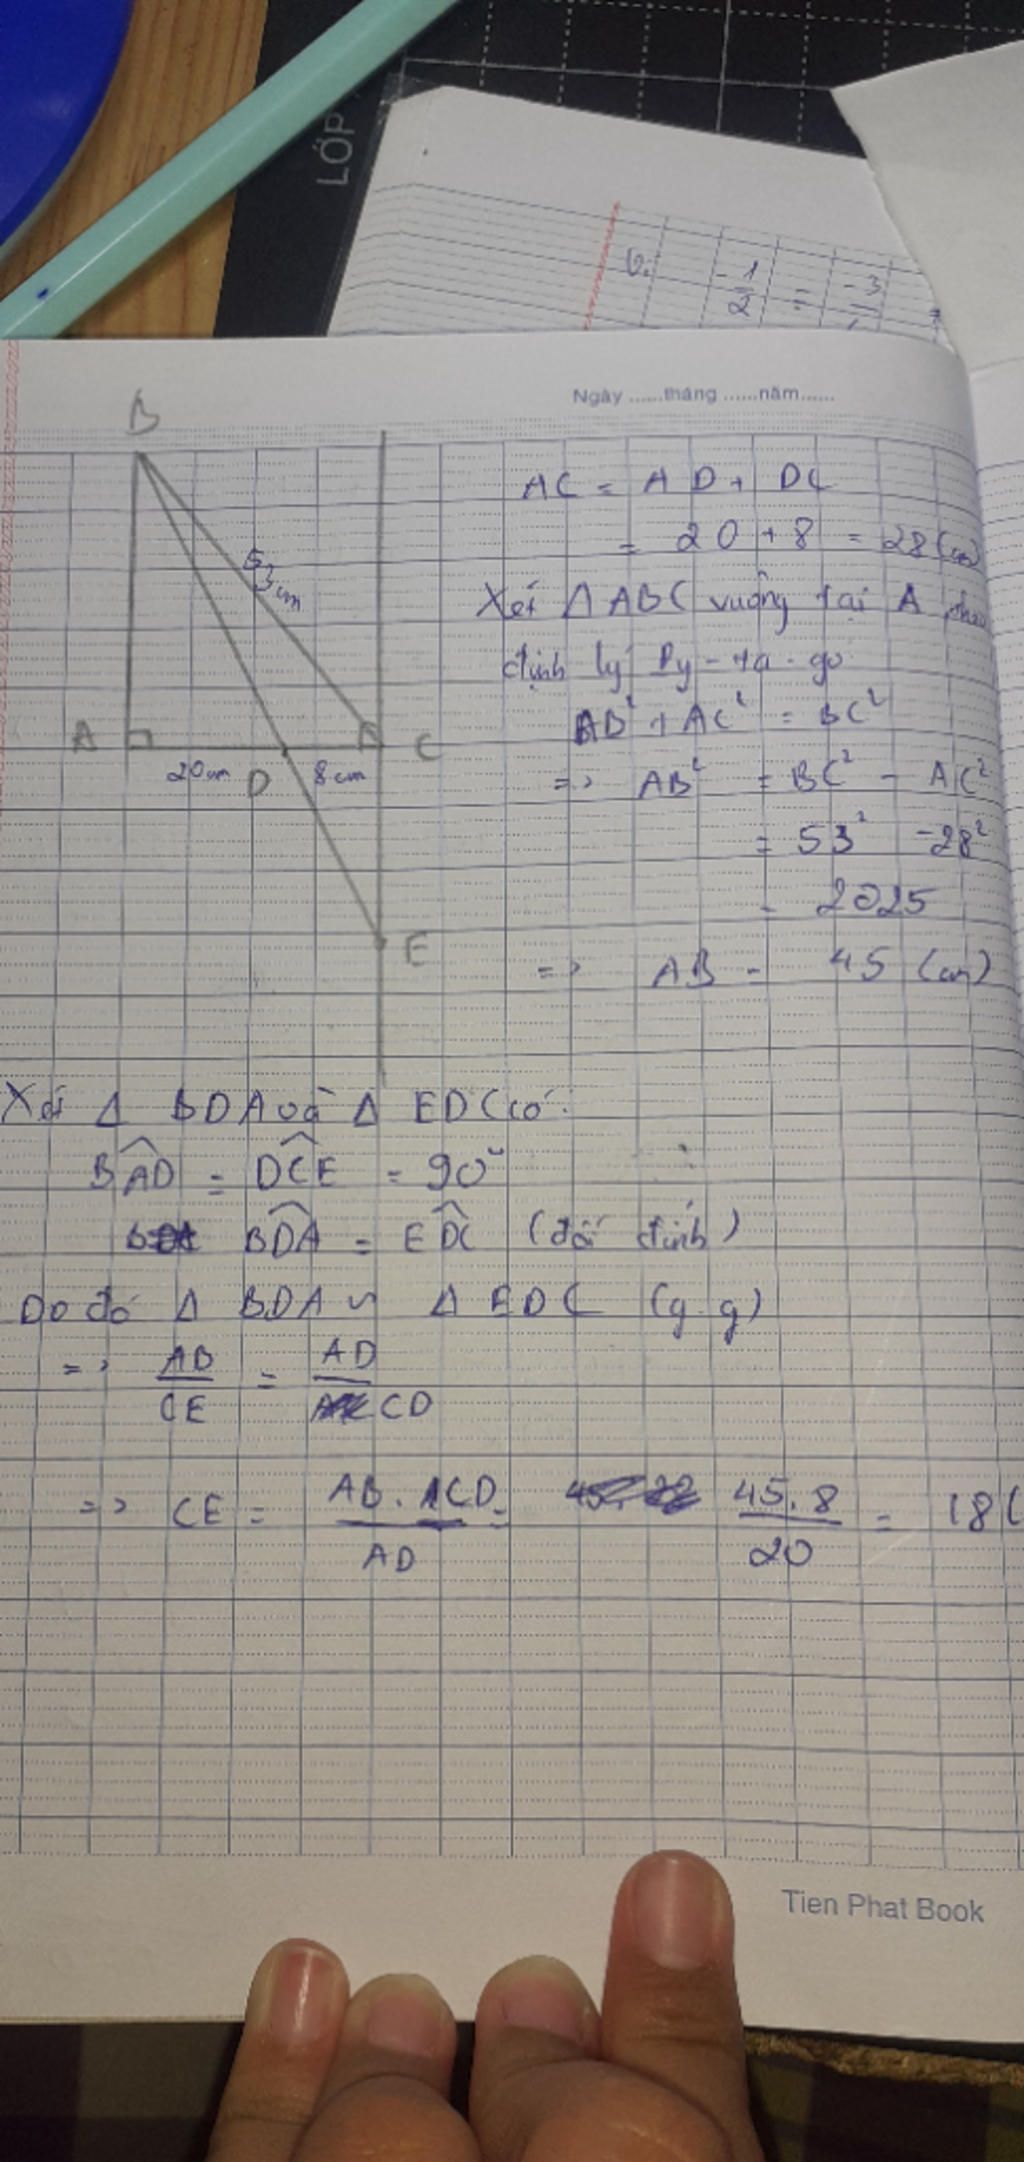 LỚP
- 1/2 = -3
Ngày ......tháng ......năm......
B
53cm
A
20cm
D
8cm
C
E
AC = AD + DC
= 20 + 8 = 28 (cm)
Xét Δ ABC vuông tại A theo
định lý Py-ta-go
AB² + AC² = BC²
=> AB² = BC² - AC²
= 53² - 28²
= 2025
=> AB = 45 (cm)
Xét Δ BDA và Δ EDC có:
BAD = DCE = 90°
BDA = EDC (đối đỉnh)
Do đó Δ BDA ∽ Δ EDC (g.g)
=> AB/CE = AD/CD
=> CE = AB.CD/AD = 45.8/20 = 18 (
Tien Phat Book